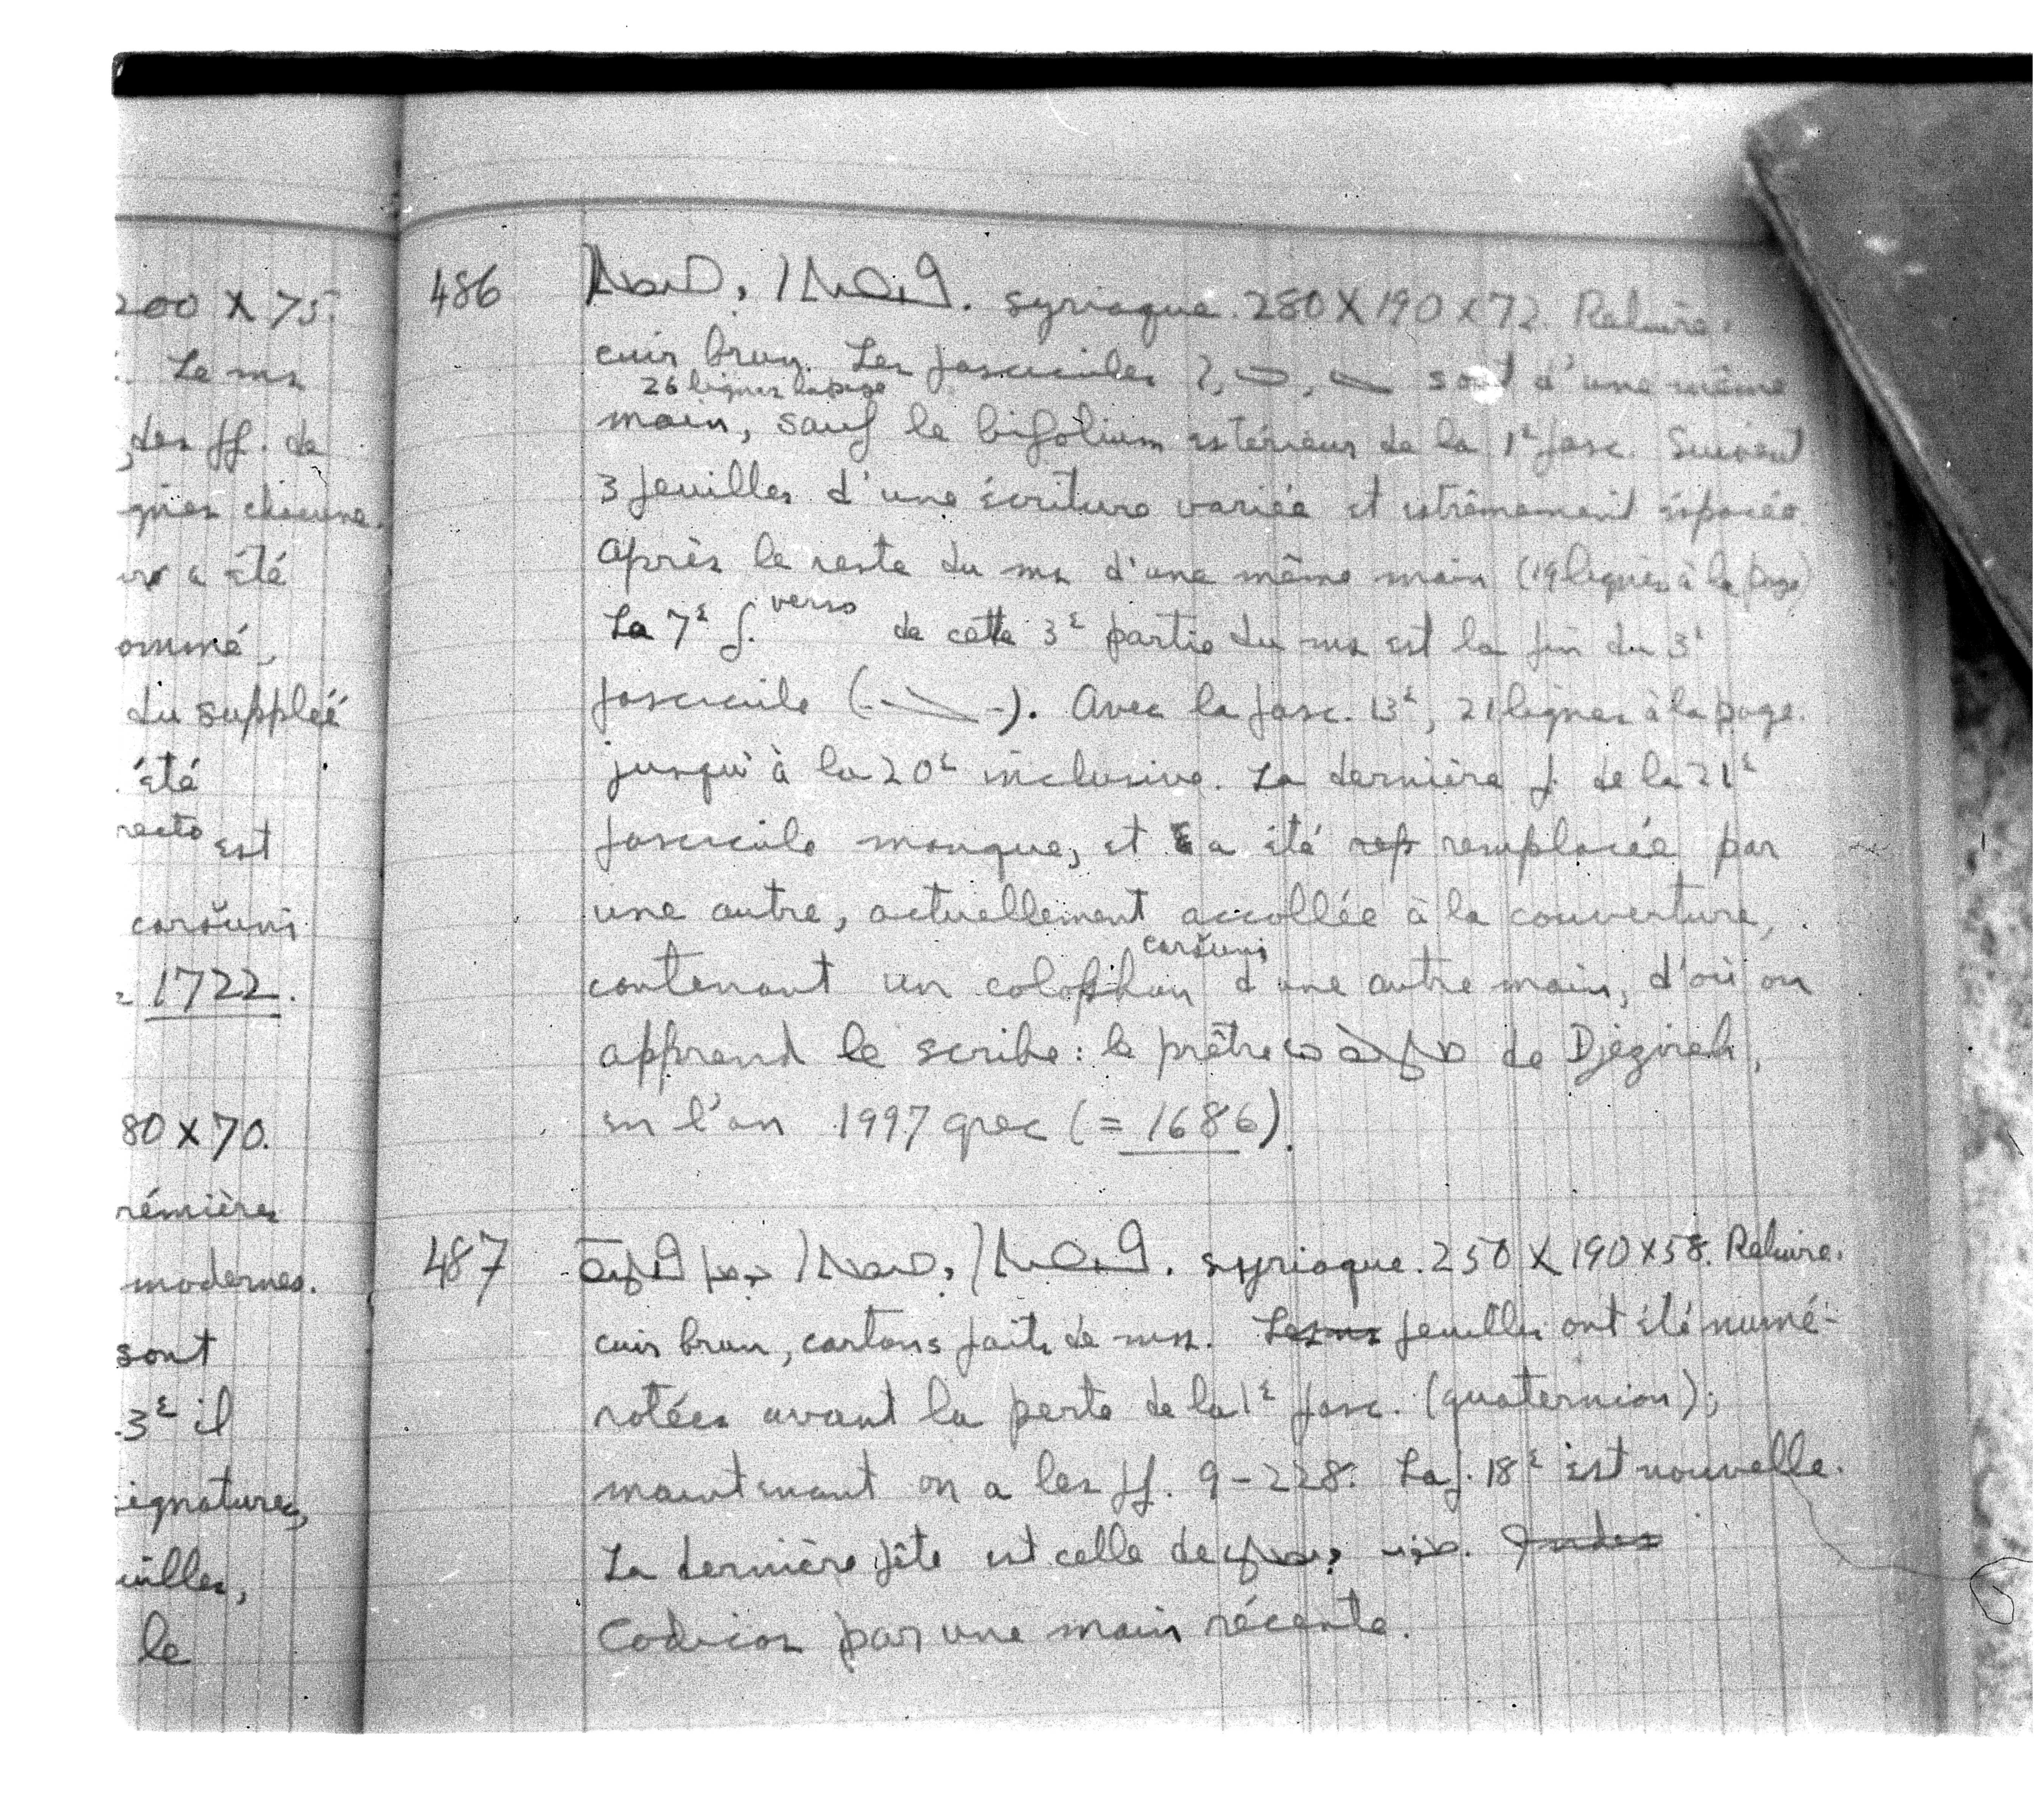 200 x 75.
Le ms
des ff. de
gnes chacune.
a été
ommé,
du suppléé
été
recto est
caršuni
1722.
80 x 70.
rémières
modernes.
sont
3e il
ignatures,
uilles,
le
486 syriaque. 280 X 190 x 72. Reliure.
cuir brun. Les fascicules ?, ܒ, ܓ sont d'une même
26 lignes la page
main, sauf le bifolium extérieur de la 1e fasc. Suivent
3 feuilles d'une écriture variée et extrêmement espacée.
Après le reste du ms d'une même main (19 lignes à la page)
La 7e f. verso de cette 3e partie du ms est la fin du 3e
fascicule (- ܓ -). Avec la fasc. 13e, 21 lignes à la page.
jusqu'à la 20e inclusive. La dernière f. de la 21e
fascicule manque, et a été rep remplacée par
une autre, actuellement accollée à la couverture,
caršuni
contenant un colophon d'une autre main, d'où on
apprend le scribe : le prêtre de Djézireh,
en l'an 1997 grec (= 1686).
487 syriaque. 250 X 190 x 58. Reliure.
cuir brun, cartons faits de mss. Les ms feuilles ont été numé-
rotées avant la perte de la 1e fasc. (quaternion);
maintenant on a les ff. 9-228. La f. 18e est nouvelle.
La dernière fête est celle de Index
Codicos par une main récente.